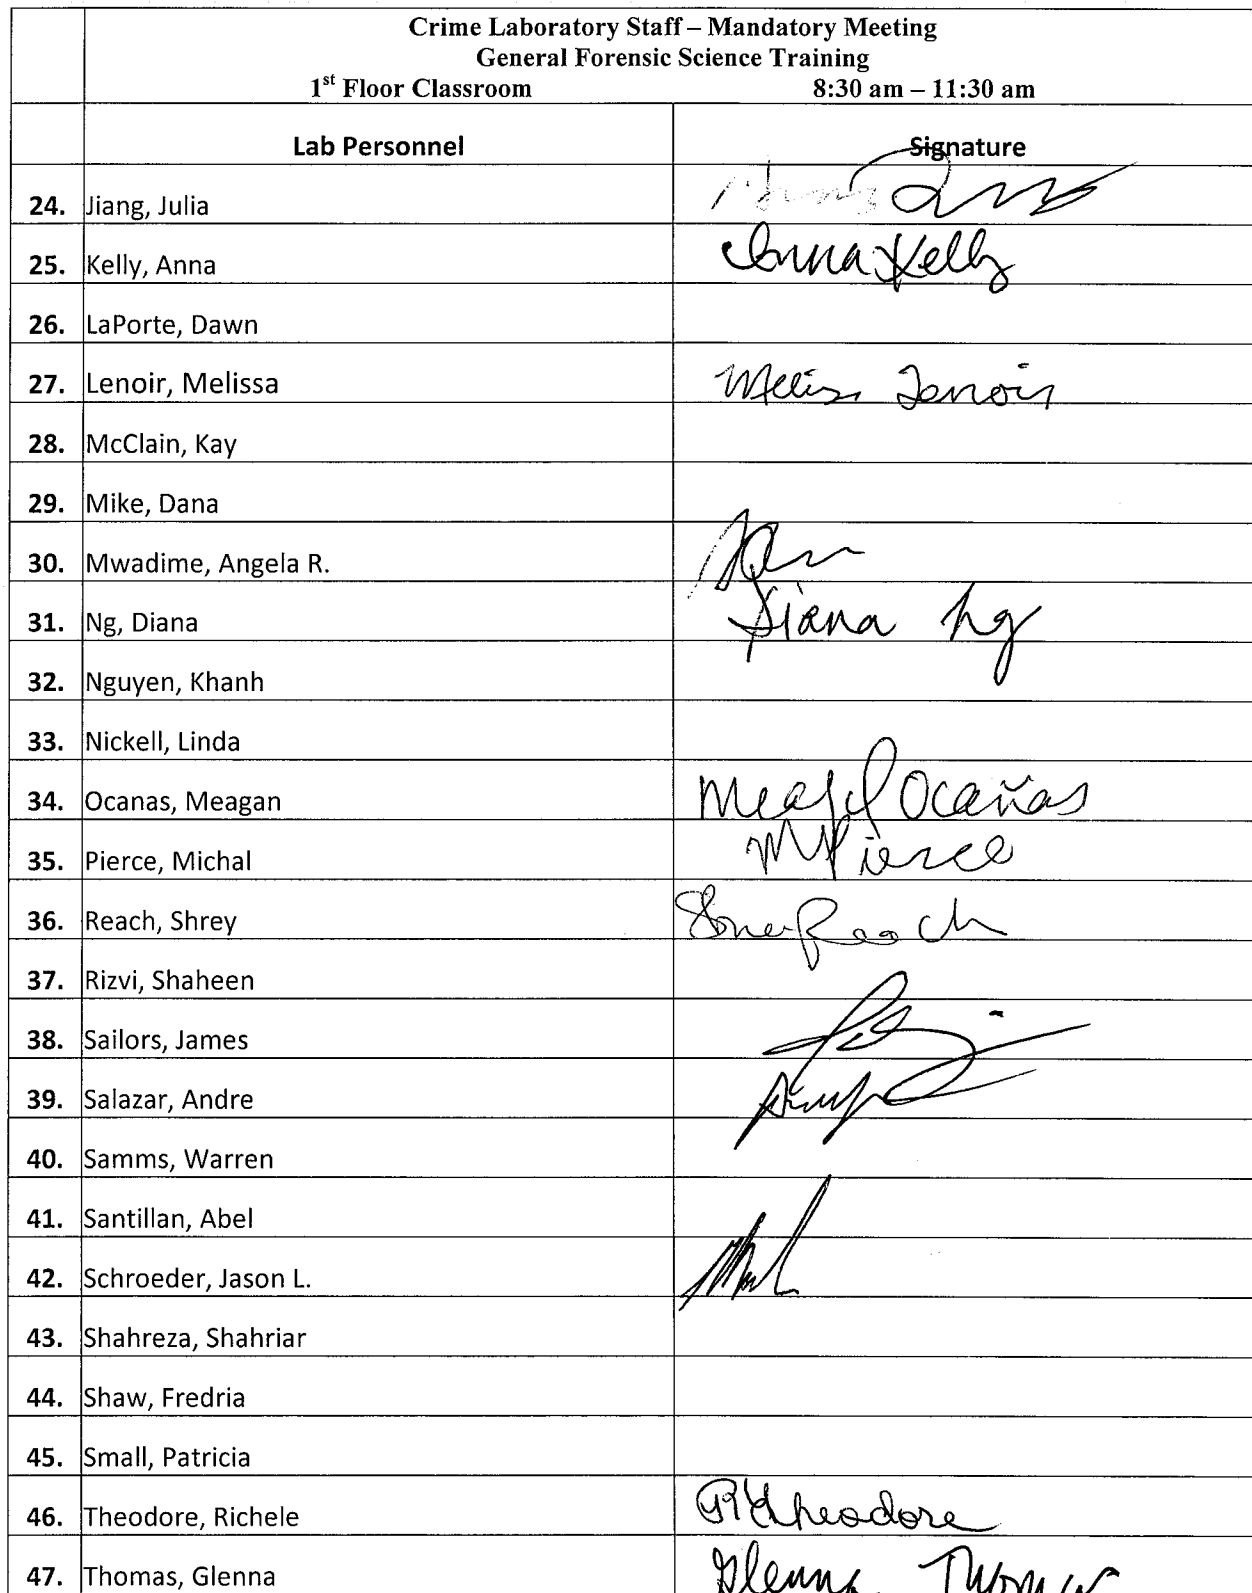 Crime Laboratory Staff – Mandatory Meeting
General Forensic Science Training
1st Floor Classroom 8:30 am – 11:30 am
Lab Personnel Signature
24. Jiang, Julia
25. Kelly, Anna Anna Kelly
26. LaPorte, Dawn
27. Lenoir, Melissa Melissa Lenoir
28. McClain, Kay
29. Mike, Dana
30. Mwadime, Angela R.
31. Ng, Diana Diana Ng
32. Nguyen, Khanh
33. Nickell, Linda
34. Ocanas, Meagan Ocañas
35. Pierce, Michal M Pierce
36. Reach, Shrey Reach
37. Rizvi, Shaheen
38. Sailors, James
39. Salazar, Andre
40. Samms, Warren
41. Santillan, Abel
42. Schroeder, Jason L.
43. Shahreza, Shahriar
44. Shaw, Fredria
45. Small, Patricia
46. Theodore, Richele Theodore
47. Thomas, Glenna Glenna Thomas